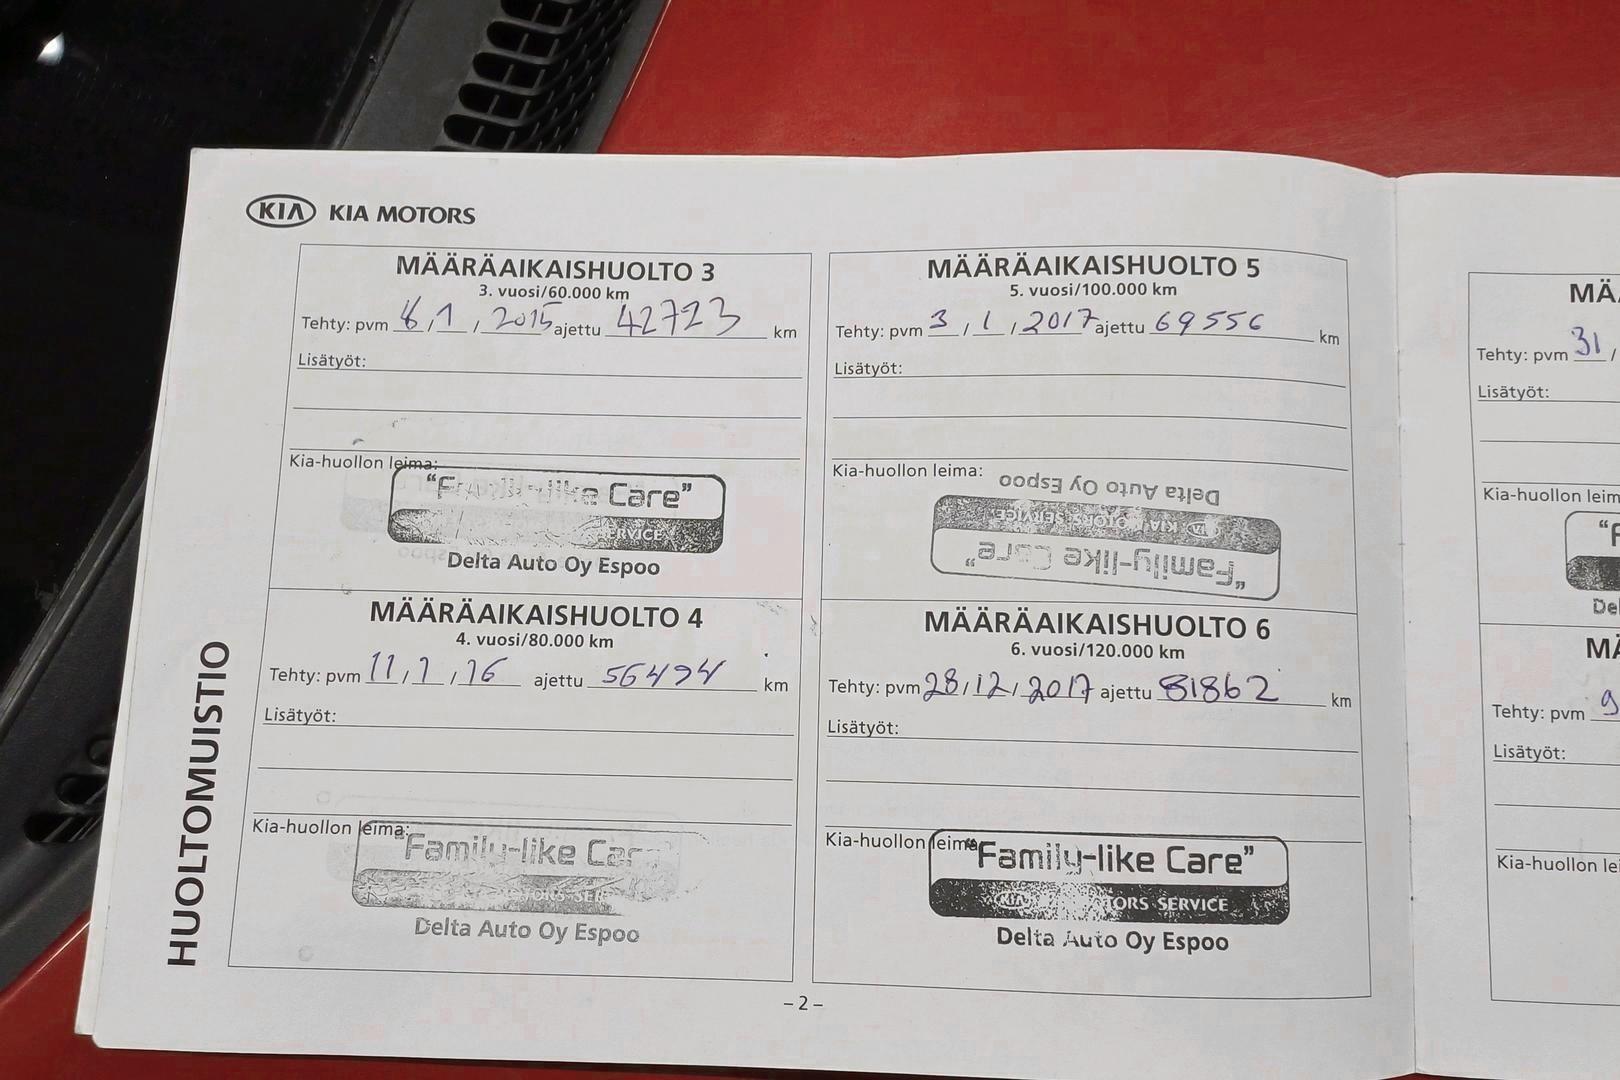 KIA KIA MOTORS
HUOLTOMUISTIO
MÄÄRÄAIKAISHUOLTO 3
3. vuosi/60.000 km
Tehty: pvm 8 / 1 / 2015 ajettu 42723 km
Lisätyöt:
Kia-huollon leima:
"Family-like Care"
SERVICE
Delta Auto Oy Espoo
MÄÄRÄAIKAISHUOLTO 4
4. vuosi/80.000 km
Tehty: pvm 11 / 1 / 16 ajettu 56494 km
Lisätyöt:
Kia-huollon leima:
"Family-like Car
MOTORS SER
Delta Auto Oy Espoo
MÄÄRÄAIKAISHUOLTO 5
5. vuosi/100.000 km
Tehty: pvm 3 / 1 / 2017 ajettu 69556 km
Lisätyöt:
Kia-huollon leima:
"Family-like Care"
KIA KIA MOTORS SERVICE
Delta Auto Oy Espoo
MÄÄRÄAIKAISHUOLTO 6
6. vuosi/120.000 km
Tehty: pvm 28 / 12 / 2017 ajettu 81862 km
Lisätyöt:
Kia-huollon leima:
"Family-like Care"
KIA MOTORS SERVICE
Delta Auto Oy Espoo
– 2 –
MÄ
Tehty: pvm 31 /
Lisätyöt:
Kia-huollon leim
"F
Del
MÄ
Tehty: pvm 9
Lisätyöt:
Kia-huollon lei